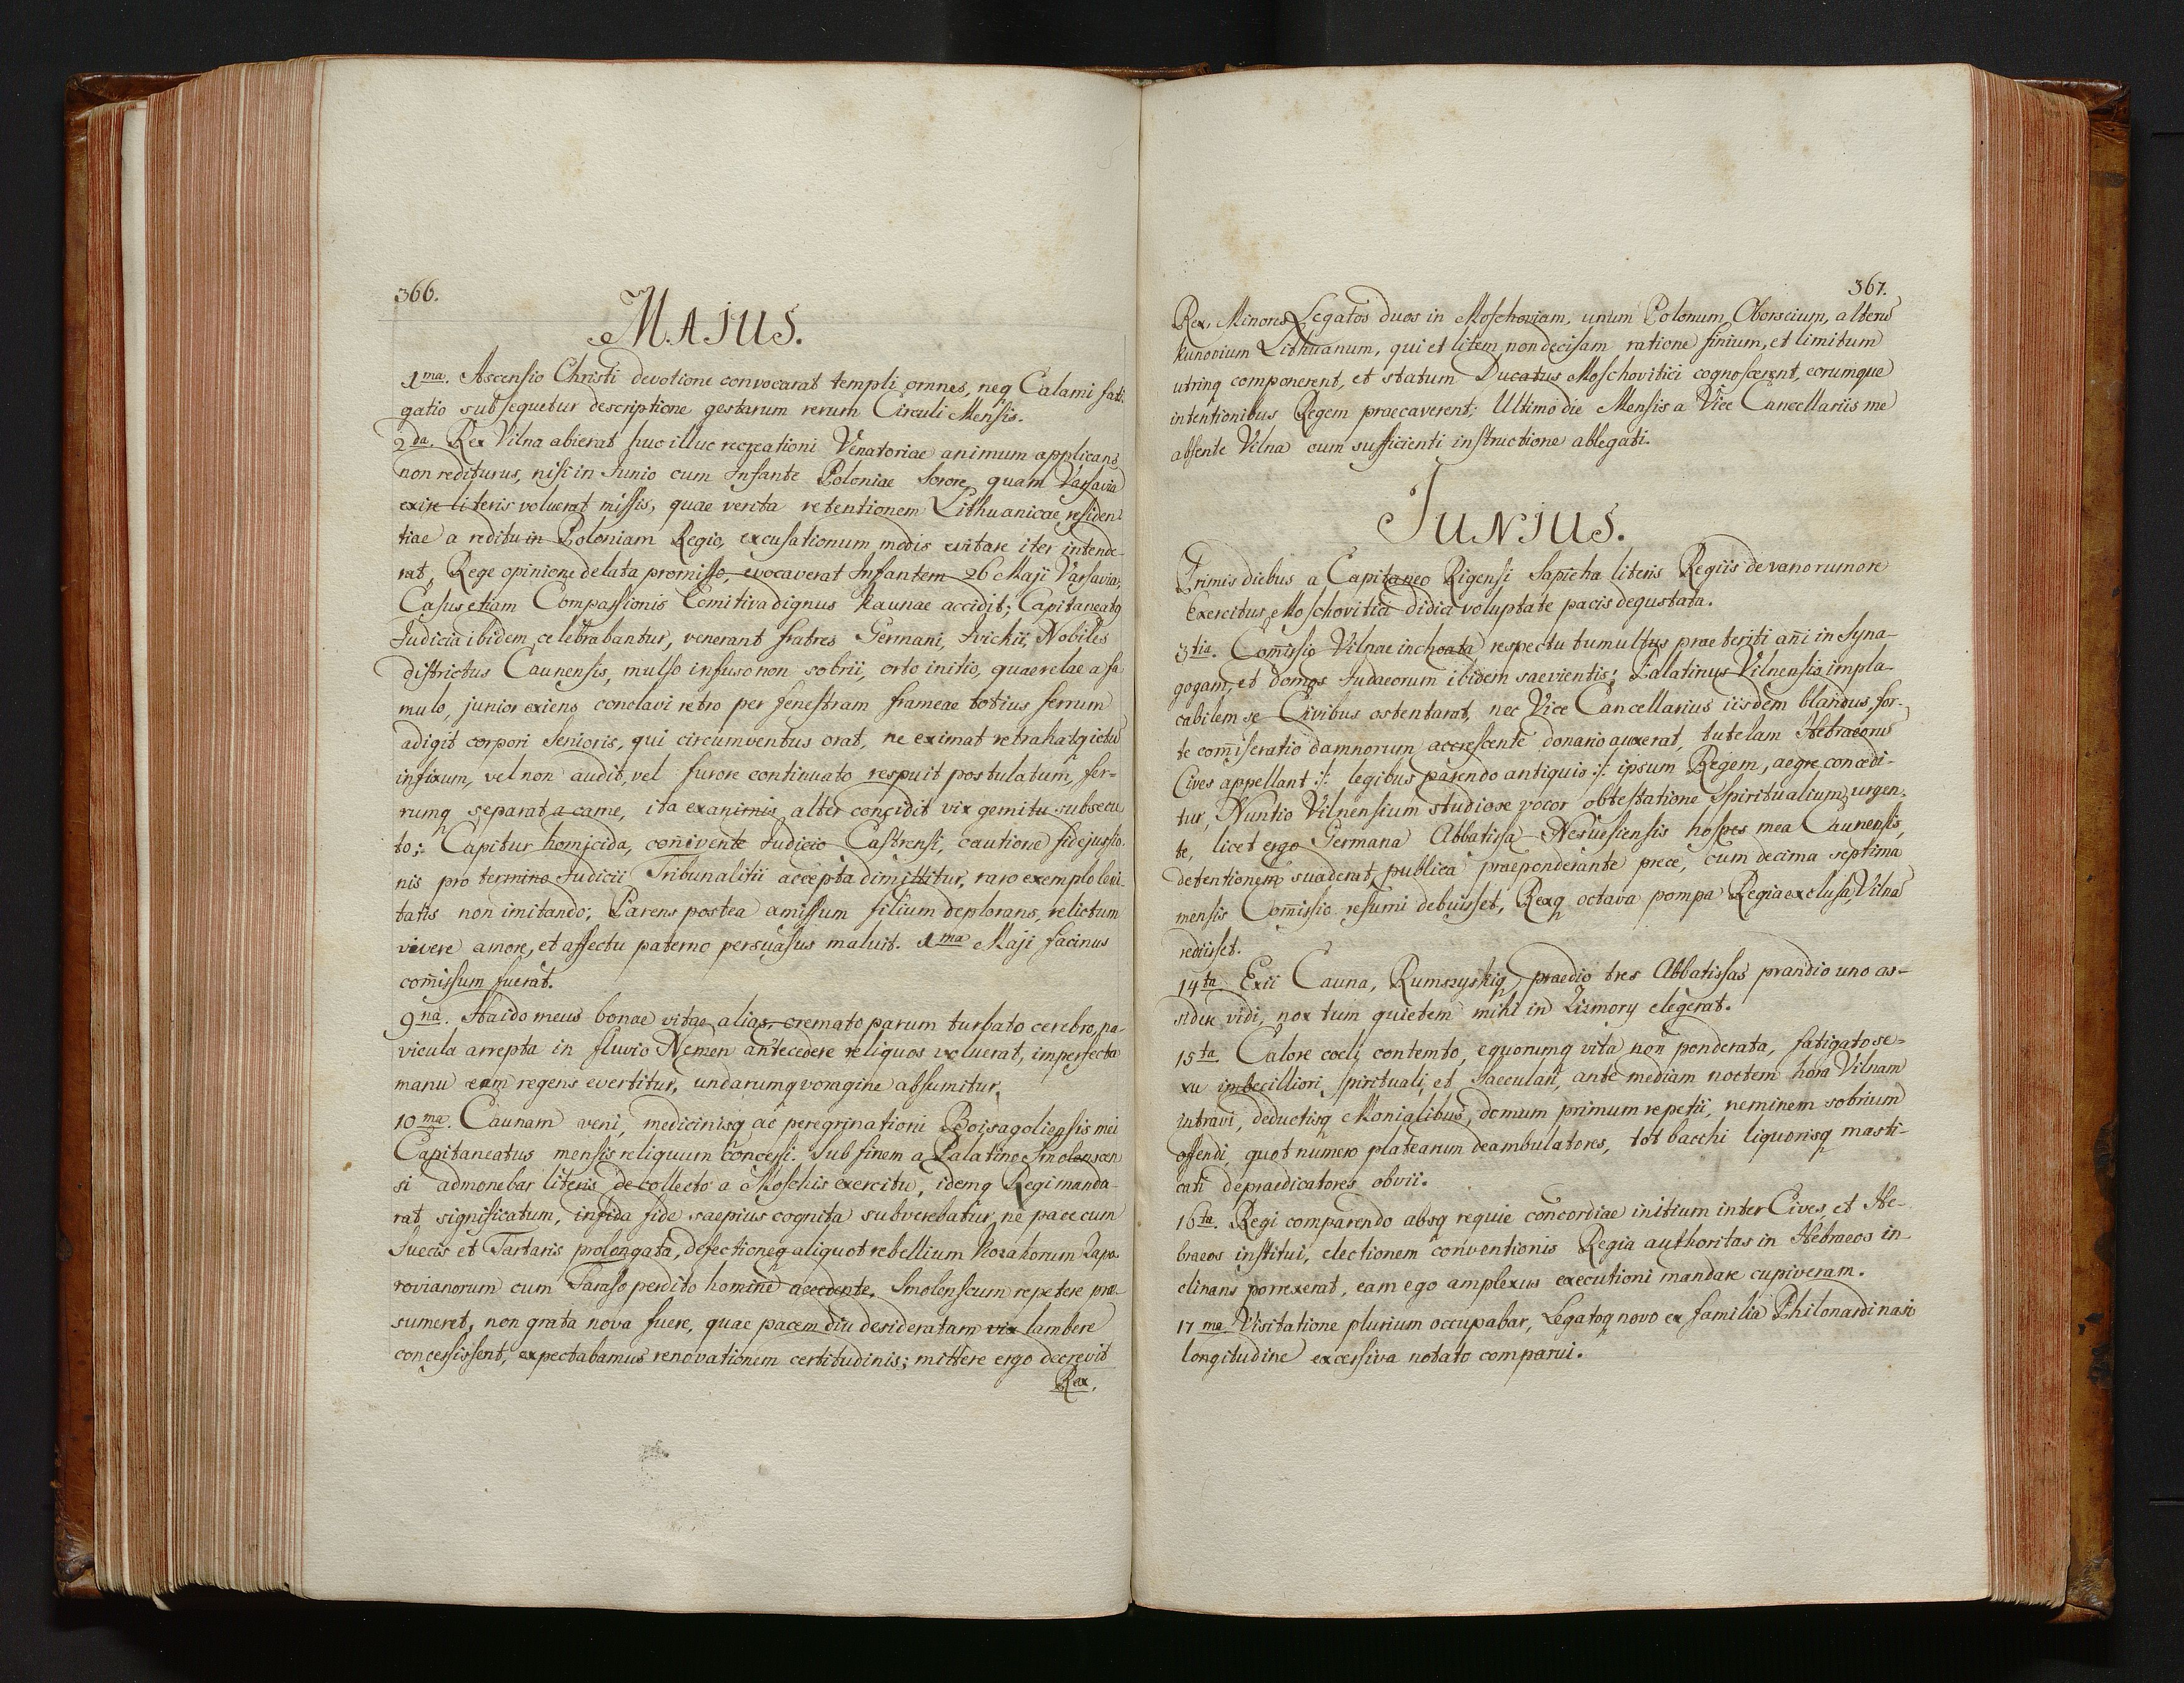 366.
MAJUS.
1ma. Ascensio Christi devotione convocarat templi omnes, neq Calami fati-
gatio subsequetur descriptione gestarum rerum Circuli Mensis.
2da. Rex Vilna abierat huc illuc recreationi Venatoriae animum applicans
non rediturus, nisi in Junio cum Infante Poloniae Sorore, quam Varsavia
exire literis voluerat missis, quae verita retentionem Lithuanicae residen-
tiae a reditu in Poloniam Regio, excusationum modis evitare iter intende-
rat, Rege opinione delata promisso, evocaverat Infantem 26 Maji Varsavia;
Casus etiam Compassionis Comitiva dignus Kaunae accidit; Capitaneatq
Judicia ibidem celebrabantur, venerant fratres Germani, Ivichii, Nobiles
districtus Caunensis, mulso infuso non sobrii, orto initio, quaerelae a fa
mulo, junior exiens conclavi retro per fenestram frameae totius ferrum
adigit corpori Senioris, qui circumventus orat, ne eximat retrahatq ictu
infixum, vel non audit, vel furore continuato respuit postulatum, fer-
rumq separat a carne, ita exanimis alter concidit vix gemitu subsecu
to; Capitur homicida, coñivente Judicio Castrensi, cautione fidejussio-
nis pro termino Judicii Tribunalitii accepta dimittitur, raro exemplo leni-
tatis non imitando; Parens postea amissum filium deplorans, relictum
vivere amore, et affectu paterno persuasus maluit. 1ma Maji facinus
com̃issum fuerat.
9na. Haido meus bonae vitae alias, cremato parum turbato cerebro, na-
vicula arrepta in fluvio Nemen antecedere reliquos voluerat, imperfecta
manu eam regens evertitur, undarumq voragine absumitur.
10ma. Caunam veni, medicinisq ac peregrinationi Boisagoliensis mei
Capitaneatus mensis reliquum concessi. Sub finem a Palatino Smolenscen
si admonebar literis de collecto a Moschis exercitu, idemq Regi manda-
rat significatum, infida fide saepius cognita subverebatur, ne pace cum
Suecis et Tartaris prolongata, defectioneq aliquot rebellium Kozakorum Zapo-
rovianorum cum Tarasso perdito homine accedente, Smolenscum repetere prae-
sumeret, non grata nova fuere, quae pacem diu desideratam vix lambere
concessissent, expectabamus renovationem certitudinis; mittere ergo decrevit
Rex,
367.
Rex, Minores Legatos duos in Moschoviam, unum Polonum Oborscium, alterũ
Kunovium Lithuanum, qui et litem non decisam ratione finium, et limitum
utrinq componerent, et statum Ducatus Moschovitici cognoscerent, eorumque
intentionibus Regem praecaverent; Ultimo die Mensis a Vice Cancellariis me
absente Vilna cum sufficienti instructione ablegati.
JUNIUS.
Primis diebus a Capitaneo Rigensi Sapieha literis Regiis de vano rumore
Exercitus Moschovitici didici voluptate pacis degustata.
3tia. Com̃issio Vilnae inchoata respectu tumultus praeteriti añi in Syna-
gogam, et domos Judaeorum ibidem saevientis; Palatinus Vilnensis impla-
cabilem se Civibus ostentarat, nec Vice Cancellarius iisdem blandus, for-
te com̃iseratio damnorum accrescente donario auxerat, tutelam Hebraeorũ
Cives appellant :/: legibus parendo antiquis :/: ipsum Regem, aegre concedi-
tur, Nuntio Vilnensium studiose vocor obtestatione Spiritualium urgen-
te, licet ergo Germana Abbatissa Nesvisiensis hospes mea Caunensis,
detentionem suaderat, publica praeponderante prece, cum decima septima
mensis Com̃issio resumi debuisset, Rexq octava pompa Regia exclusa, Vilnã
rediisset.
14ta. Exii Cauna, Rumszyskiq praedio tres Abbatissas prandio uno as-
sidere vidi, nox tum quietem mihi in Zizmory elegerat.
15ta. Calore coeli contemto, equorumq vita non ponderata, fatigato se-
xu imbecilliori, spirituali, et saeculari, ante mediam noctem hora Vilnam
intravi, deductisq Monialibus, domum primum repetii, neminem sobrium
offendi, quot numero platearum deambulatores, tot bacchi liquorisq masti-
cati depraedicatores obvii.
16ta. Regi comparendo absq requie concordiae initium inter Cives, et He-
braeos institui, electionem conventionis Regia authoritas in Hebraeos in-
clinans porrexerat, eam ego amplexus executioni mandare cupiveram.
17ma. Visitatione plurium occupabar, Legatoq novo ex familia Philonardi nasi
longitudine excessiva notato comparui.